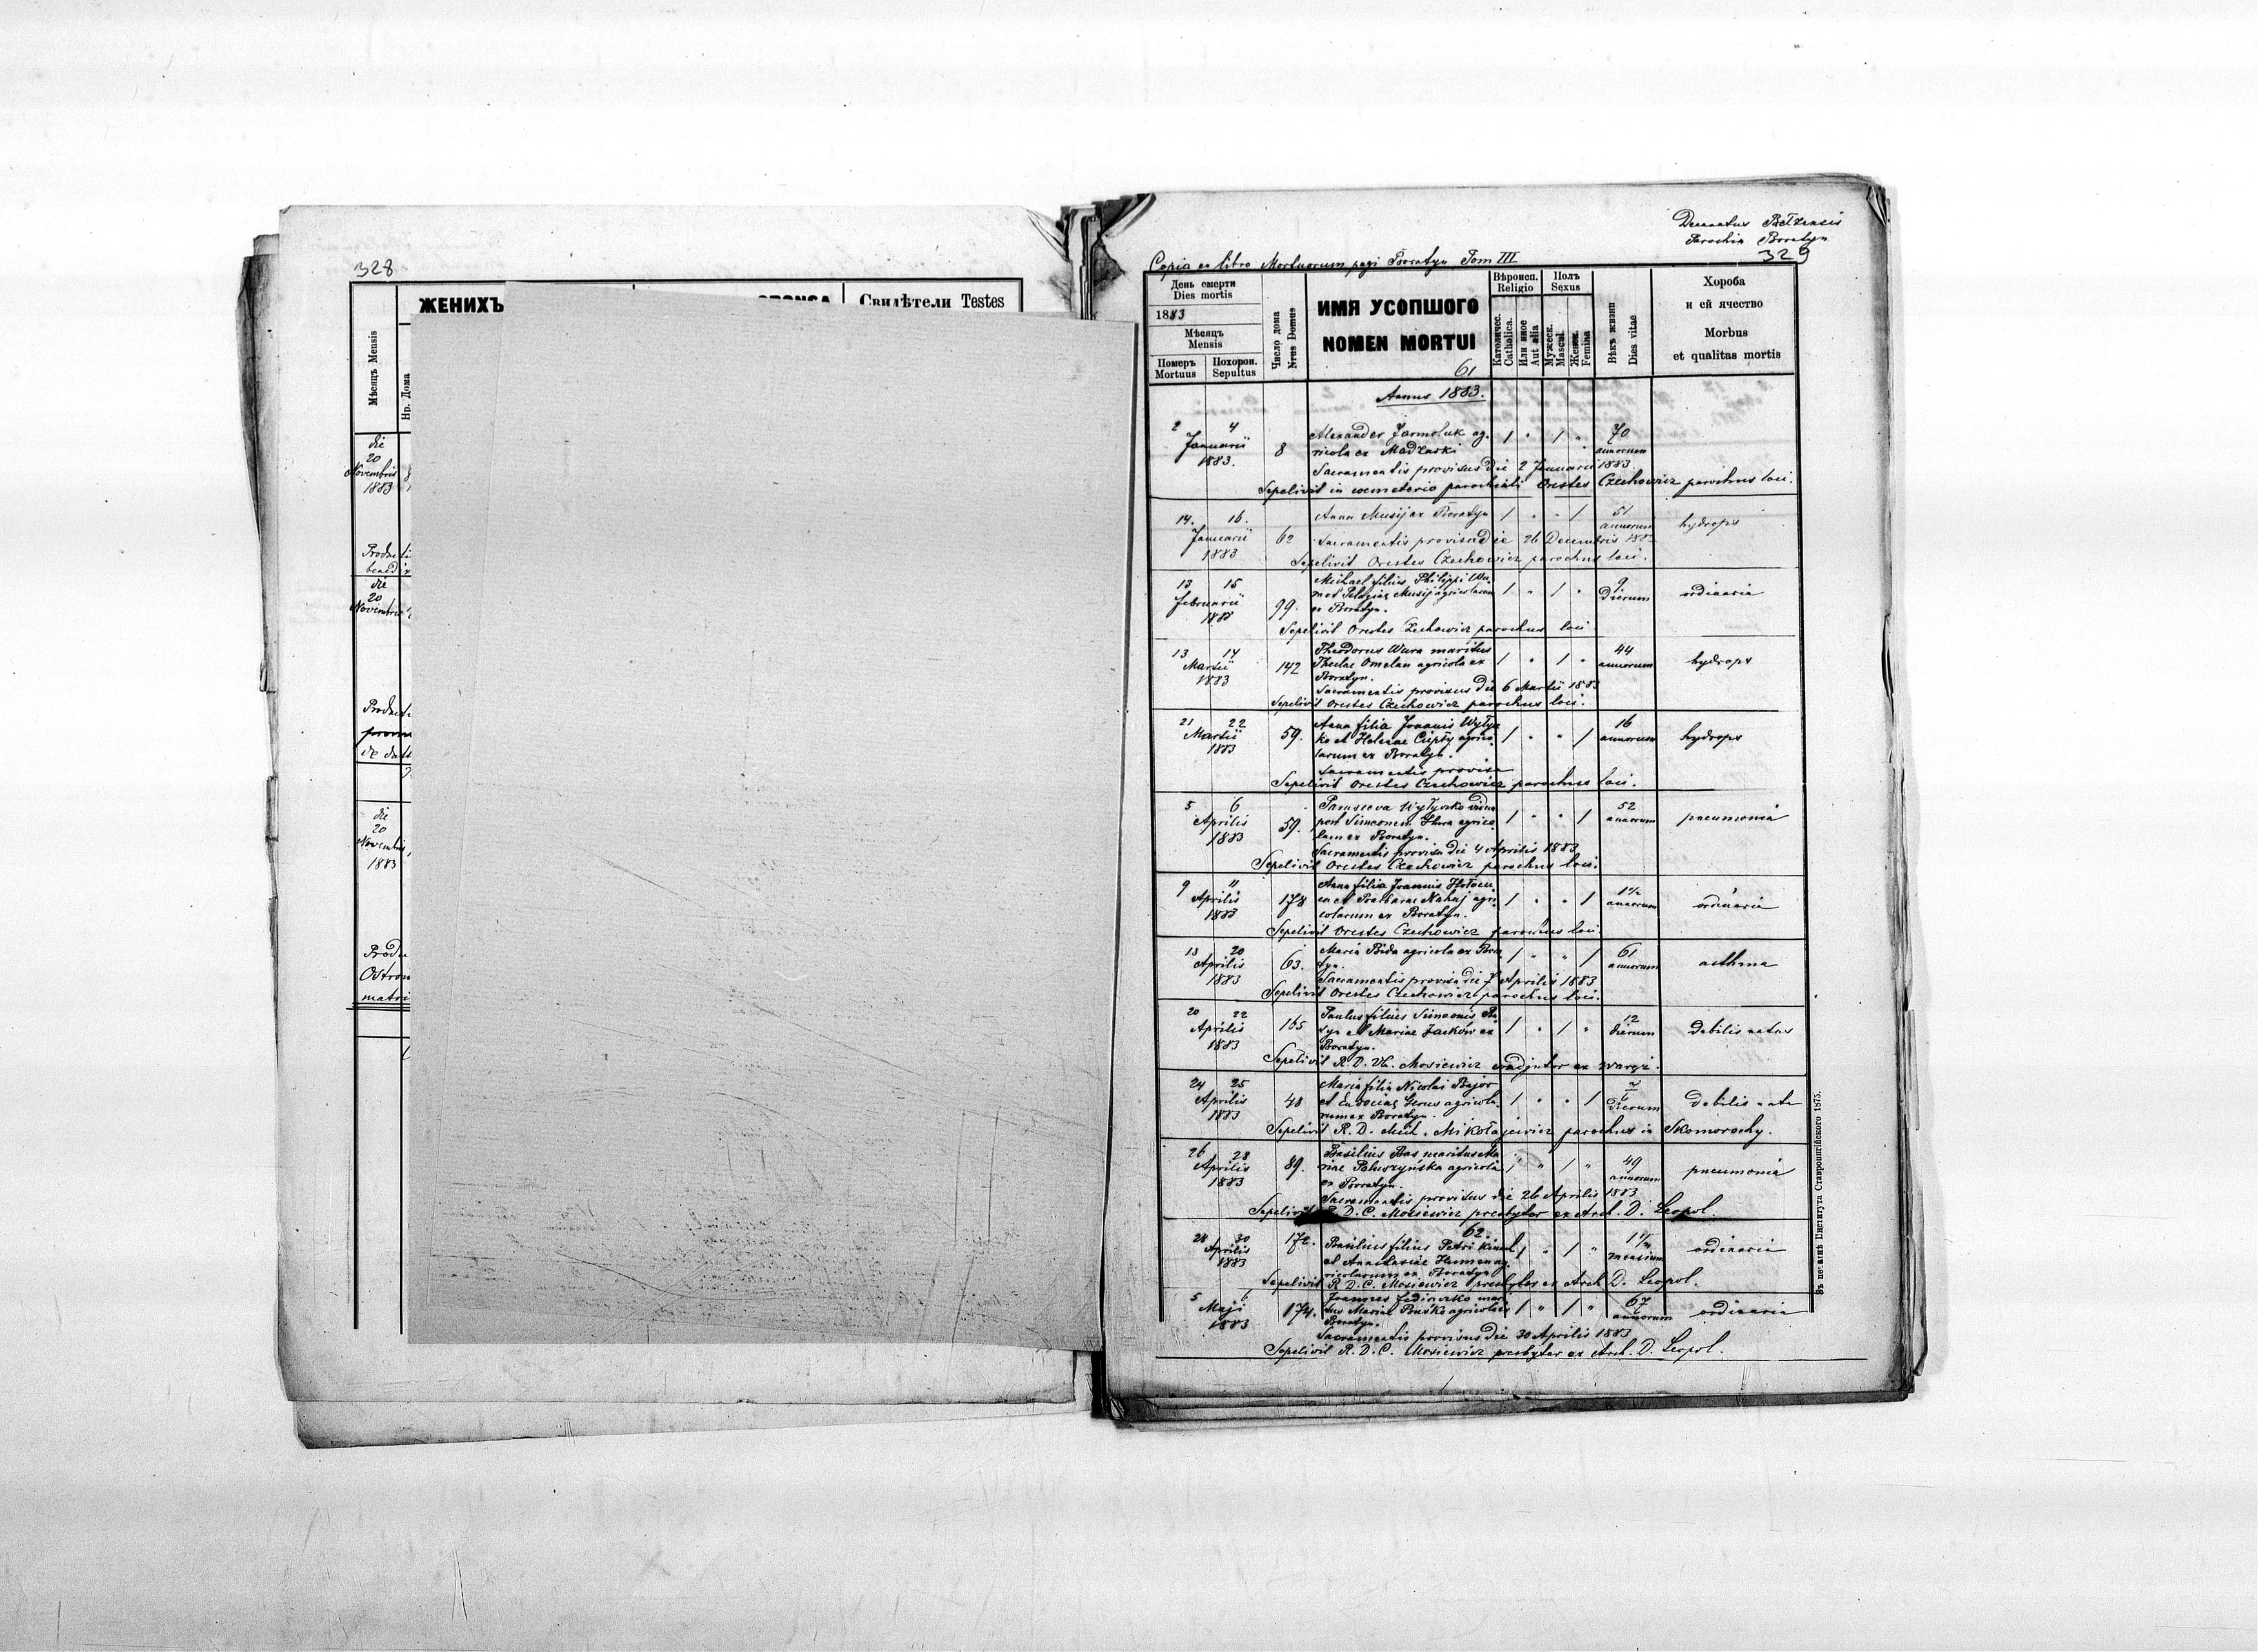 328
ЖЕНИХЪ
Свидѣтели Testes
Мѣсяцъ Mensis
Нр. Дома
die
20
Novembris
1883
die
20
Novembris
die
20
Novembris
1883
Decanatus Bełzensis
Parochia Boratyn
329
Copia ex libro Mortuorum pagi Boratyn Tom III
День смерти
Dies mortis
1883
Мѣсяцъ
Mensis
Померъ
Mortuus
Похорон.
Sepultus
Число дома
Nrus Domus
ИМЯ УСОПШОГО
NOMEN MORTUI
61
Вѣроисп.
Religio
Католичес.
Catholica.
Или иное
Aut alia
Полъ
Sexus
Мужеск.
Mascul.
Женск.
Femina
Вѣкъ жизни
Dies vitae
Хороба
и ей ячество
Morbus
et qualitas mortis
Annus 1883.
2 4 Alexander Jarmoluk ag- 1 " 1 " 70
Januarii 8 ricola ex Madziarki annorum
1883. Sacramentis provisus die 2 Januarii 1883
Sepelivit in coemeterio parochiali Orestes Czechowicz parochus loci.
14. 16. Anna Musij ex Boratyn 1 " " 1 51 hydrops
Januarii 62 annorum
1883 Sacramentis provisa die 26 Decembris
Sepelivit Orestes Czechowicz parochus loci.
13 15 Michael filius Philippi 1 " 1 " 9 ordinaria
Februarii 99. et Pelagiae Musij agricolarum dierum
1883 ex Boratyn.
Sepelivit Orestes Czechowicz parochus loci
13 14 Theodorus Wura maritus 1 " 1 " 44 hydrops
Martii 142 Theclae Omelan agricola ex annorum
1883 Boratyn.
Sacramentis provisus die 6 Martii 1883
Sepelivit Orestes Czechowicz parochus loci.
21 22 Anna filia Joannis Wytyś- 1 " " 1 16 hydrops
Martii 59. ko et Helenae Ciepły agrico- annorum
1883 larum ex Boratyn.
Sacramentis provisa
Sepelivit Orestes Czechowicz parochus loci.
5 6 Parasceva vidua 1 " " 1 52 pneumonia
Aprilis 59. post Simeonem agrico- annorum
1883 lam ex Boratyn.
Sacramentis provisa die 4 Aprilis 1883
Sepelivit Orestes Czechowicz parochus loci.
9 11 Anna filia Joannis 1 " " 1 1½ ordinaria
Aprilis 178 et Barbarae agri- annorum
1883 colarum ex Boratyn.
Sepelivit Orestes Czechowicz parochus loci.
18 20 Maria Bida agricola ex Bora- 1 " " 1 61 asthma
Aprilis 63. tyn. annorum
1883 Sacramentis provisa die 7 Aprilis 1883
Sepelivit Orestes Czechowicz parochus loci.
20 22 Paulus filius Simeonis 1 " 1 " 12 debilis natus
Aprilis 165 et Mariae Jacków ex dierum
1883 Boratyn.
Sepelivit R. D. Vl. Mosiewicz coadjutor ex Waręż.
24 25 Maria filia Nicolai Bajor 1 " " 1 debilis nata
Aprilis 48 et Eudociae agricola- dierum
1883 rum ex Boratyn.
Sepelivit R. D. Mich. Mikołajewicz parochus in Skomorochy.
26 28 Basilius Bas maritus Ma- 1 " 1 " 49 pneumonia
Aprilis 89. riae Paluszyńska agricola annorum
1883 ex Boratyn.
Sacramentis provisus die 26 Aprilis 1883
Sepelivit R. D. C. Mosiewicz presbyter ex Arch. D. Leopol.
62.
28 30 172. Basilius filius Petri 1 " 1 " ordinaria
Aprilis et Anastasiae ag- mensium
1883 ricolarum ex Boratyn
Sepelivit R. D. C. Mosiewicz presbyter ex Arch. D. Leopol.
5 6 Joannes Fedirczko mari- 1 " 1 " 67 ordinaria
Maji 174. tus Mariae agricola ex annorum
1883 Boratyn.
Sacramentis provisus die 30 Aprilis 1883
Sepelivit R. D. C. Mosiewicz presbyter ex Arch. D. Leopol.
Въ печатнѣ Института Ставропигійского 1875.